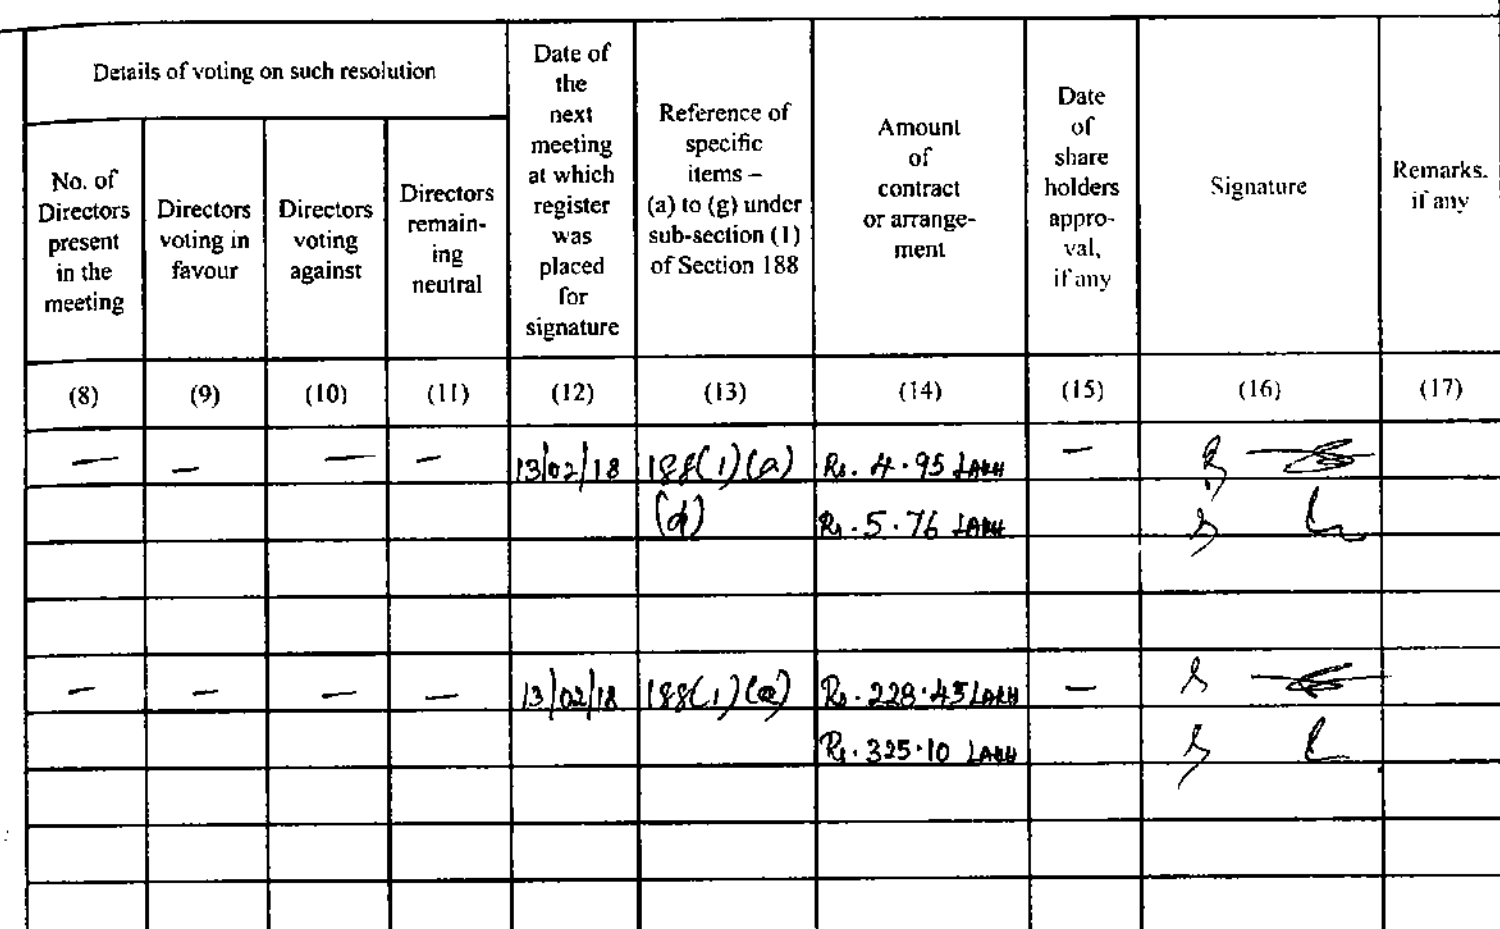 Details of voting on such resolution
No. of
Directors
present
in the
meeting
Directors
voting in
favour
Directors
voting
against
Directors
remain-
ing
neutral
Date of
the
next
meeting
at which
register
was
placed
for
signature
Reference of
specific
items –
(a) to (g) under
sub-section (1)
of Section 188
Amount
of
contract
or arrange-
ment
Date
of
share
holders
appro-
val,
if any
Signature
Remarks.
if any
(8) (9) (10) (11) (12) (13) (14) (15) (16) (17)
— — — — 13/02/18 188(1)(a) Rs. 4.95 LAKH —
(d) Rs. 5.76 LAKH
— — — — 13/02/18 188(1)(a) Rs. 228.45 LAKH —
Rs. 325.10 LAKH